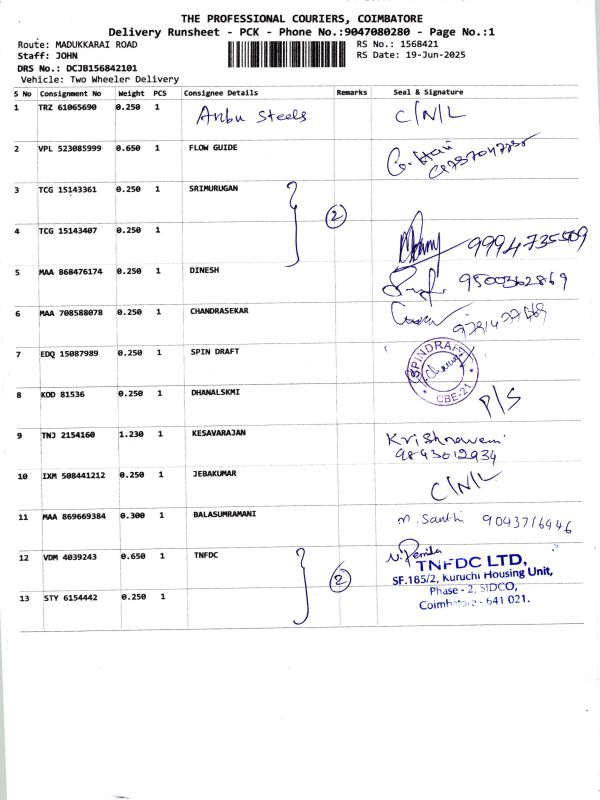 THE PROFESSIONAL COURIERS, COIMBATORE
Delivery Runsheet - PCK - Phone No.:9047080280 - Page No.:1
Route: MADUKKARAI ROAD RS No.: 1568421
Staff: JOHN RS Date: 19-Jun-2025
DRS No.: DCJB156842101
Vehicle: Two Wheeler Delivery
S No Consignment No Weight PCS Consignee Details Remarks Seal & Signature
1 TRZ 61065690 0.250 1 Anbu Steels C/N/L
2 VPL 523085999 0.650 1 FLOW GUIDE
3 TCG 15143361 0.250 1 SRIMURUGAN 2
4 TCG 15143407 0.250 1 9994735509
5 MAA 868476174 0.250 1 DINESH 9500362869
6 MAA 708588078 0.250 1 CHANDRASEKAR
7 EDQ 15087989 0.250 1 SPIN DRAFT SPINDRAFT CBE-21
8 KOD 81536 0.250 1 DHANALSKMI P/S
9 TNJ 2154160 1.230 1 KESAVARAJAN Krishnaveni
9843012934
10 IXM 508441212 0.250 1 JEBAKUMAR C/N/L
11 MAA 869669384 0.300 1 BALASUMRAMANI M. Santhi 9043716446
12 VDM 4039243 0.650 1 TNFDC 2
TNFDC LTD,
SF.185/2, Kuruchi Housing Unit,
Phase - 2, SIDCO,
Coimbatore - 641 021.
13 STY 6154442 0.250 1